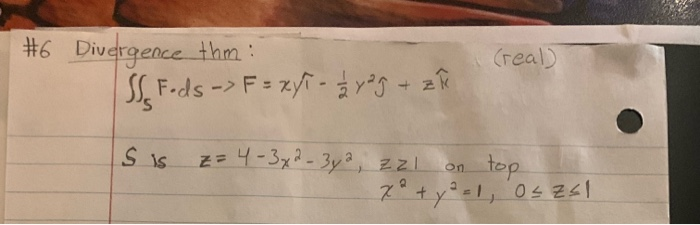 #6 Divergence thm: (real)
∬_S F·ds -> F = xyî - ½ y²ĵ + zk̂
S is z = 4 - 3x² - 3y², z≥1 on top
x² + y² = 1, 0 ≤ z ≤ 1